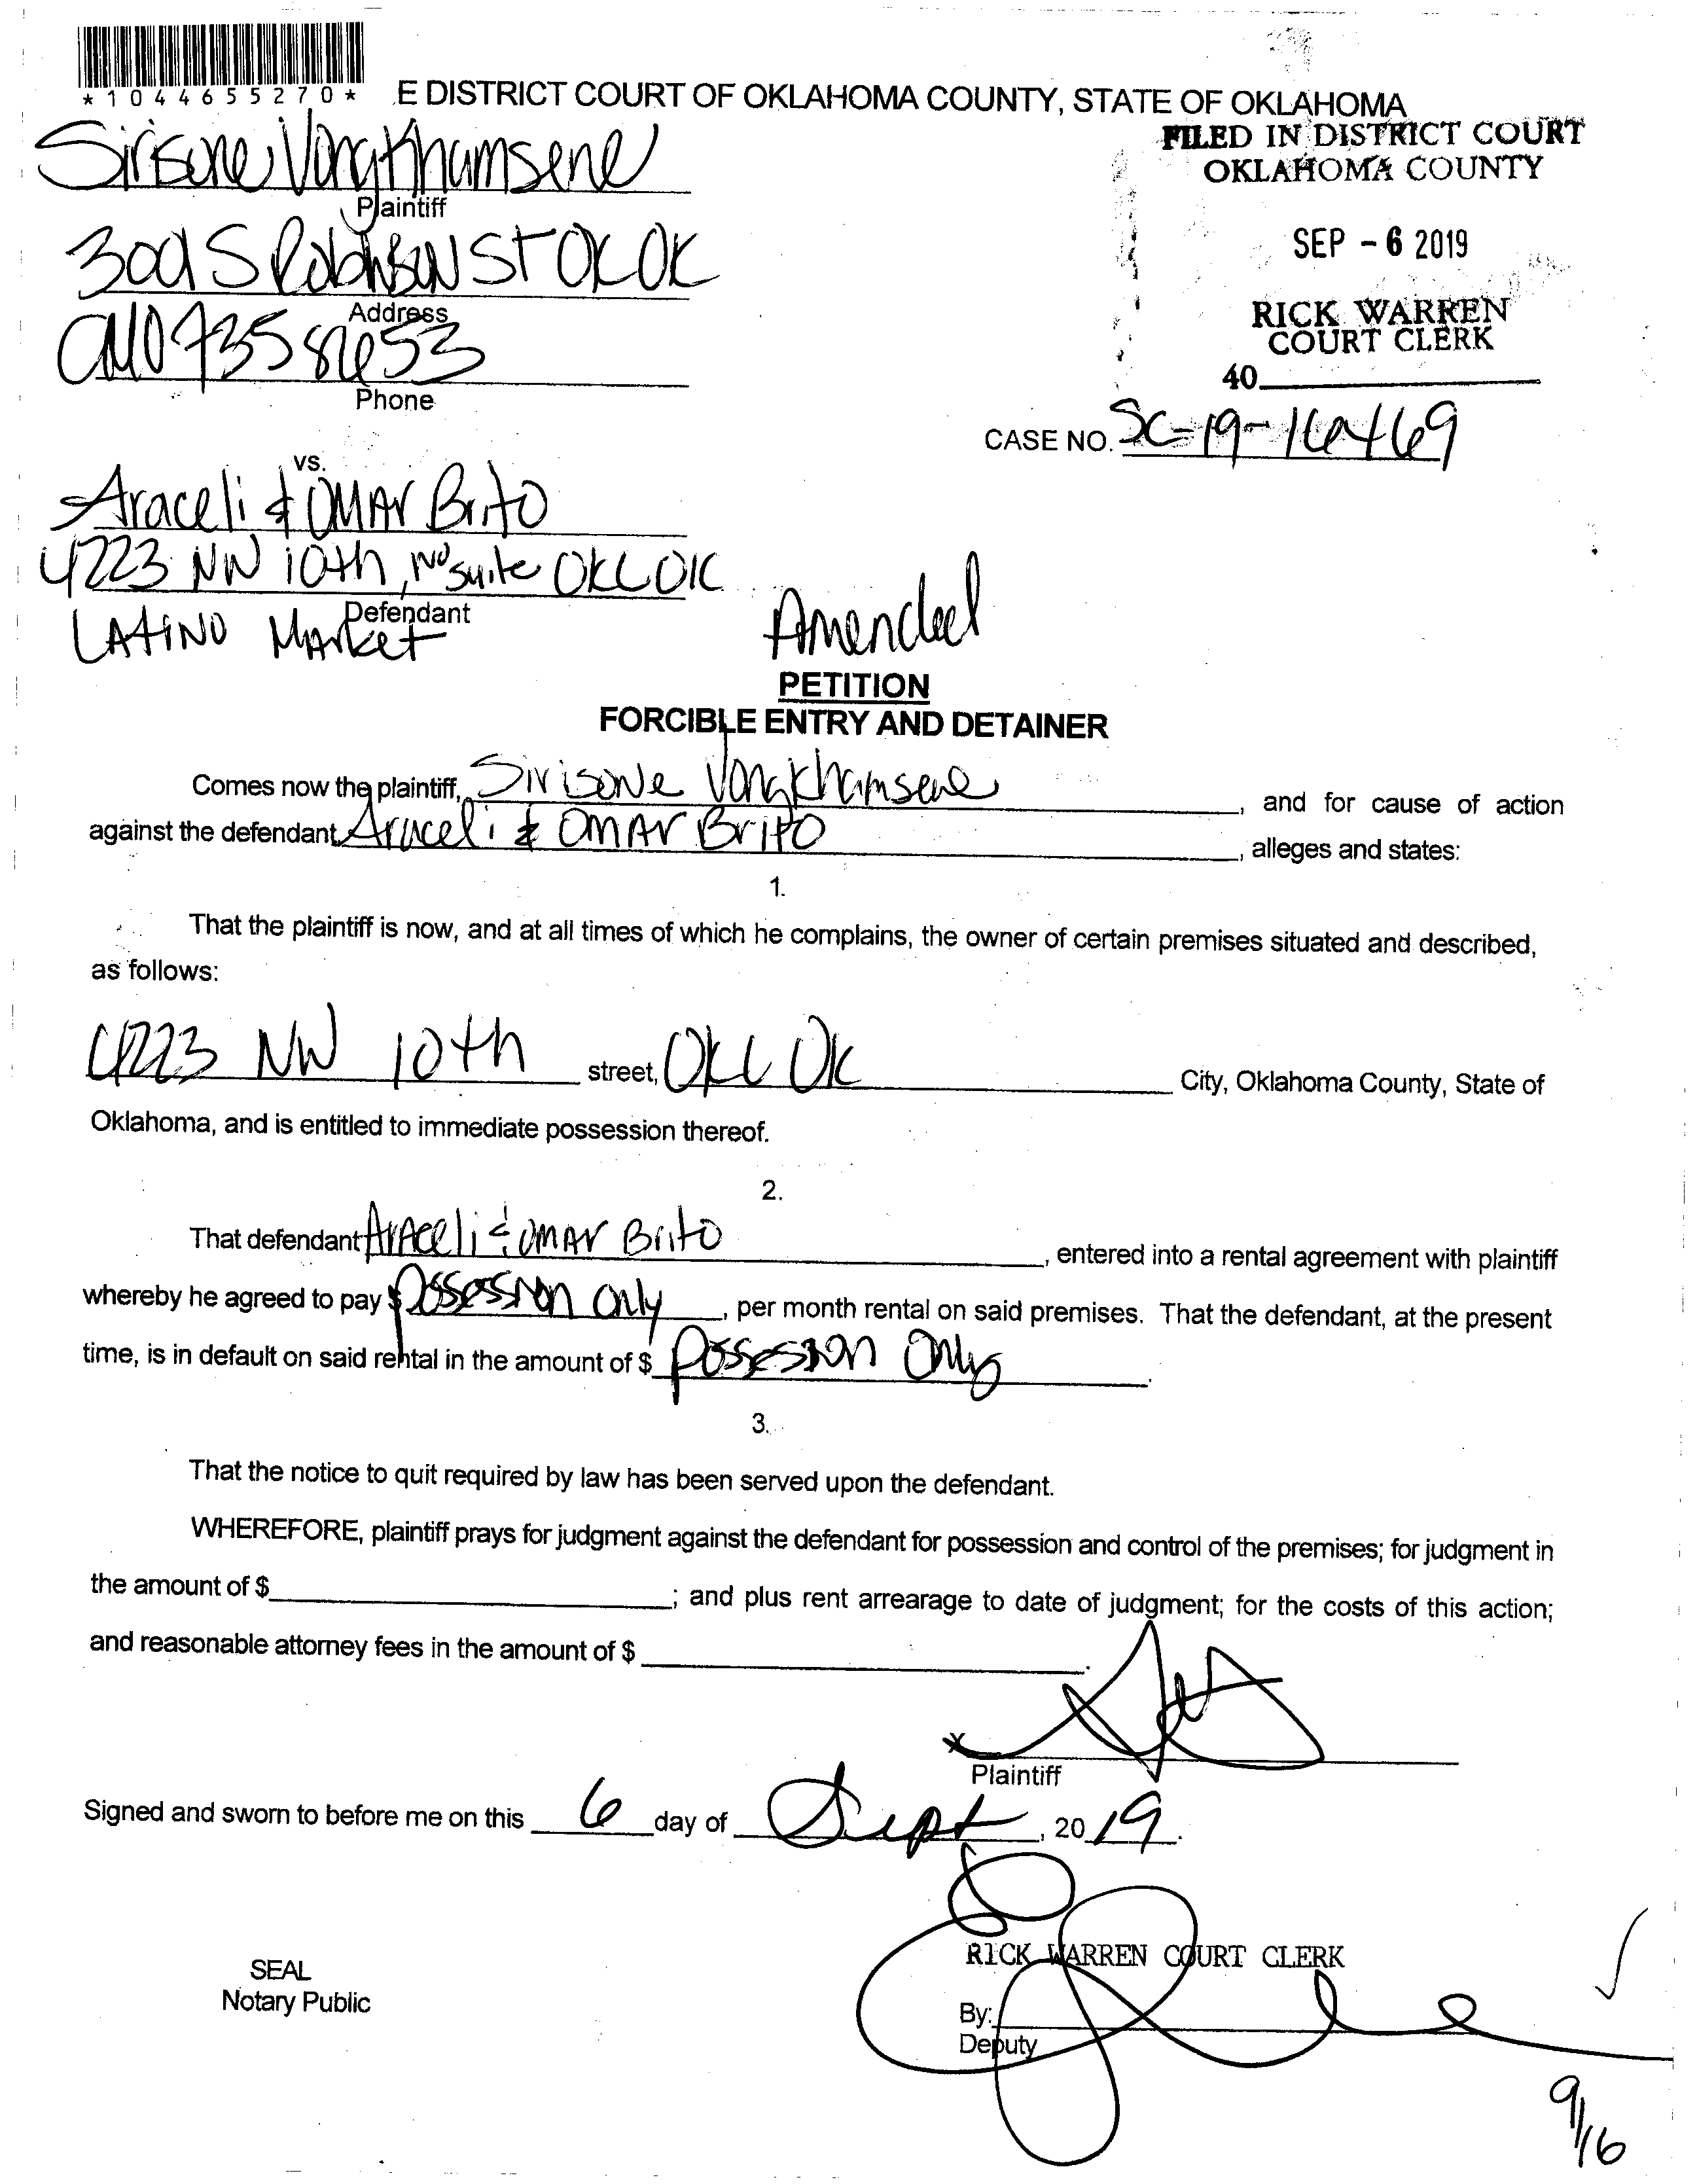 *1044655270*
E DISTRICT COURT OF OKLAHOMA COUNTY, STATE OF OKLAHOMA
FILED IN DISTRICT COURT
OKLAHOMA COUNTY
SEP - 6 2019
RICK WARREN
COURT CLERK
40
Sirisone Vongkhamsene
Plaintiff
S Robinson ST OK OK
Address
Phone
CASE NO. SC-19-16469
vs.
Araceli & OMAR Brito
4223 NW 10th, NO suite OKC OK
Defendant
LATINO Market
Amended
PETITION
FORCIBLE ENTRY AND DETAINER
Comes now the plaintiff, Sirisone Vongkhamsene, and for cause of action
against the defendant, Araceli & OMAR Brito, alleges and states:
1.
That the plaintiff is now, and at all times of which he complains, the owner of certain premises situated and described,
as follows:
4223 NW 10th street, OKC OK City, Oklahoma County, State of
Oklahoma, and is entitled to immediate possession thereof.
2.
That defendant Araceli & OMAR Brito, entered into a rental agreement with plaintiff
whereby he agreed to pay $ Possession Only, per month rental on said premises. That the defendant, at the present
time, is in default on said rental in the amount of $ Possession Only.
3.
That the notice to quit required by law has been served upon the defendant.
WHEREFORE, plaintiff prays for judgment against the defendant for possession and control of the premises; for judgment in
the amount of $; and plus rent arrearage to date of judgment; for the costs of this action;
and reasonable attorney fees in the amount of $.
X
Plaintiff
Signed and sworn to before me on this 6 day of Sept, 2019.
RICK WARREN COURT CLERK
SEAL
Notary Public
By:
Deputy
9/16